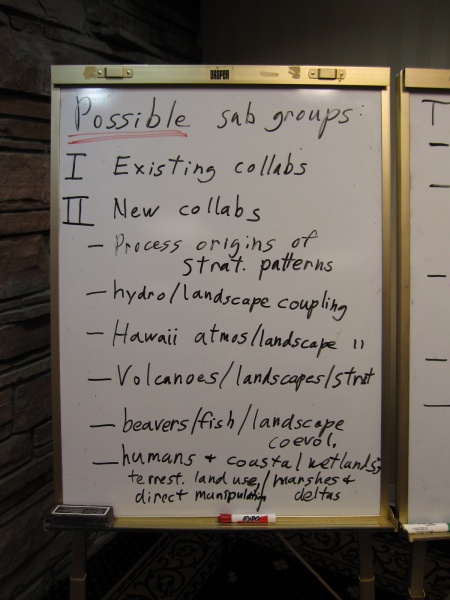 DRAPER
Possible sub groups:
I Existing collabs
II New collabs
— Process origins of
strat. patterns
— hydro/landscape coupling
— Hawaii atmos/landscape "
— Volcanoes/landscapes/strat
— beavers/fish/landscape
coevol.
— humans + coastal wetlands;
terrest. land use/marshes +
direct manipulation deltas
EXPO
T